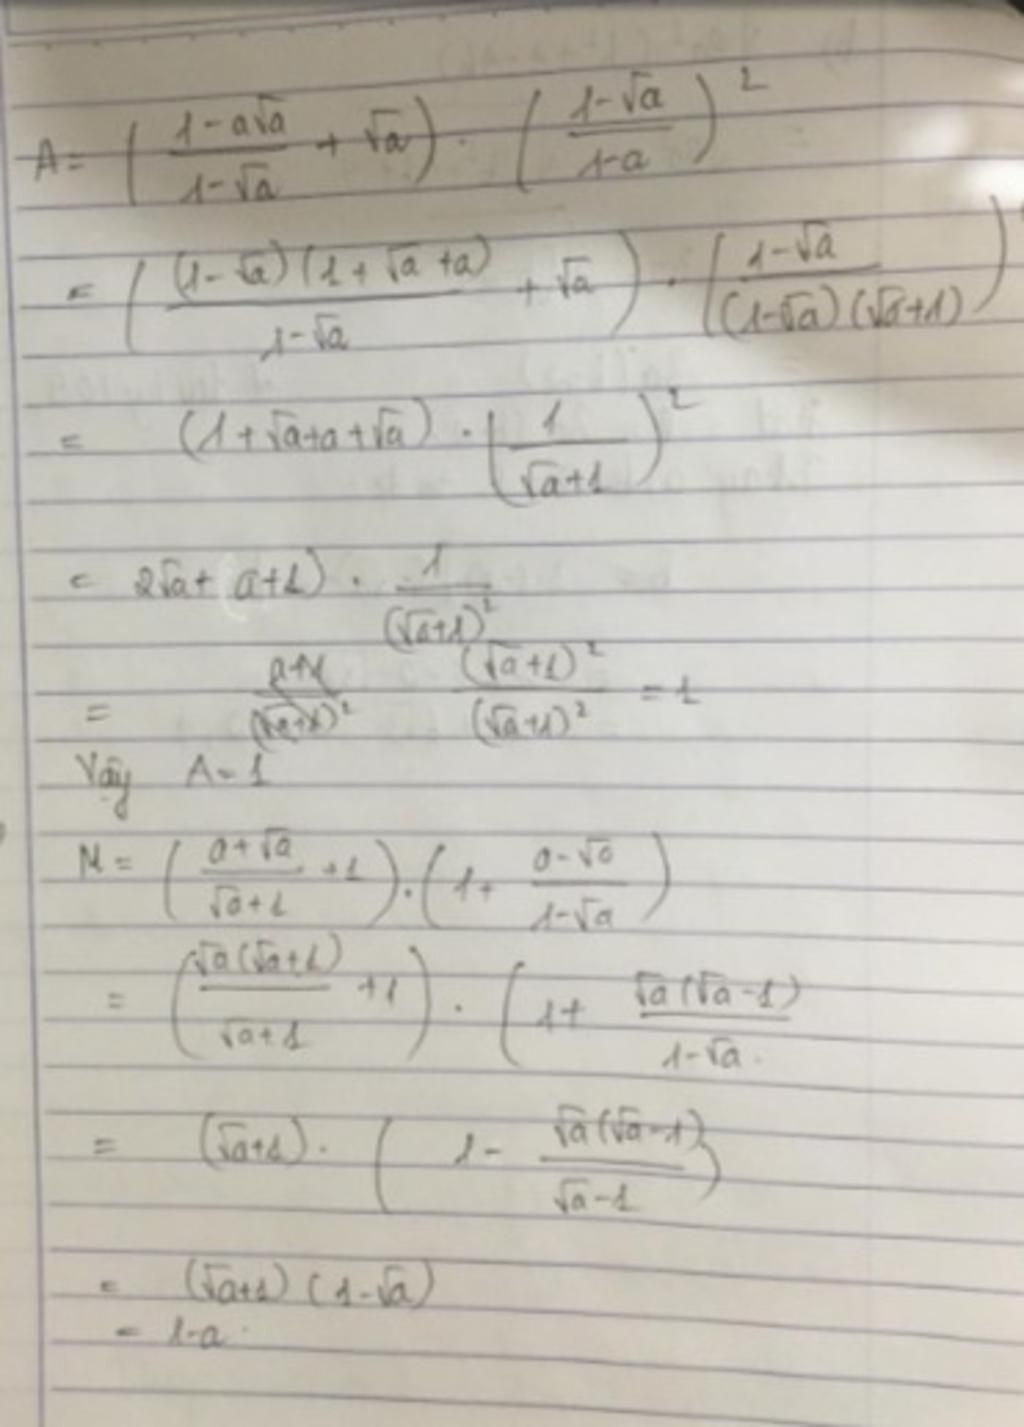 A = ( (1 - a√a)/(1 - √a) + √a ) . ( (1 - √a)/(1 - a) )²
= ( (1 - √a)(1 + √a + a)/(1 - √a) + √a ) . ( (1 - √a)/((1 - √a)(√a + 1)) )²
= (1 + √a + a + √a) . ( 1/(√a + 1) )²
= 2√a + (a + 1) . 1/(√a + 1)²
= (√a + 1)²/(√a + 1)² = 1
Vậy A = 1
M = ( (a + √a)/(√a + 1) + 1 ) . ( 1 + (a - √a)/(1 - √a) )
= ( √a(√a + 1)/(√a + 1) + 1 ) . ( 1 + √a(√a - 1)/(1 - √a)
= (√a + 1) . ( 1 - √a(√a - 1)/(√a - 1) )
= (√a + 1)(1 - √a)
= 1 - a